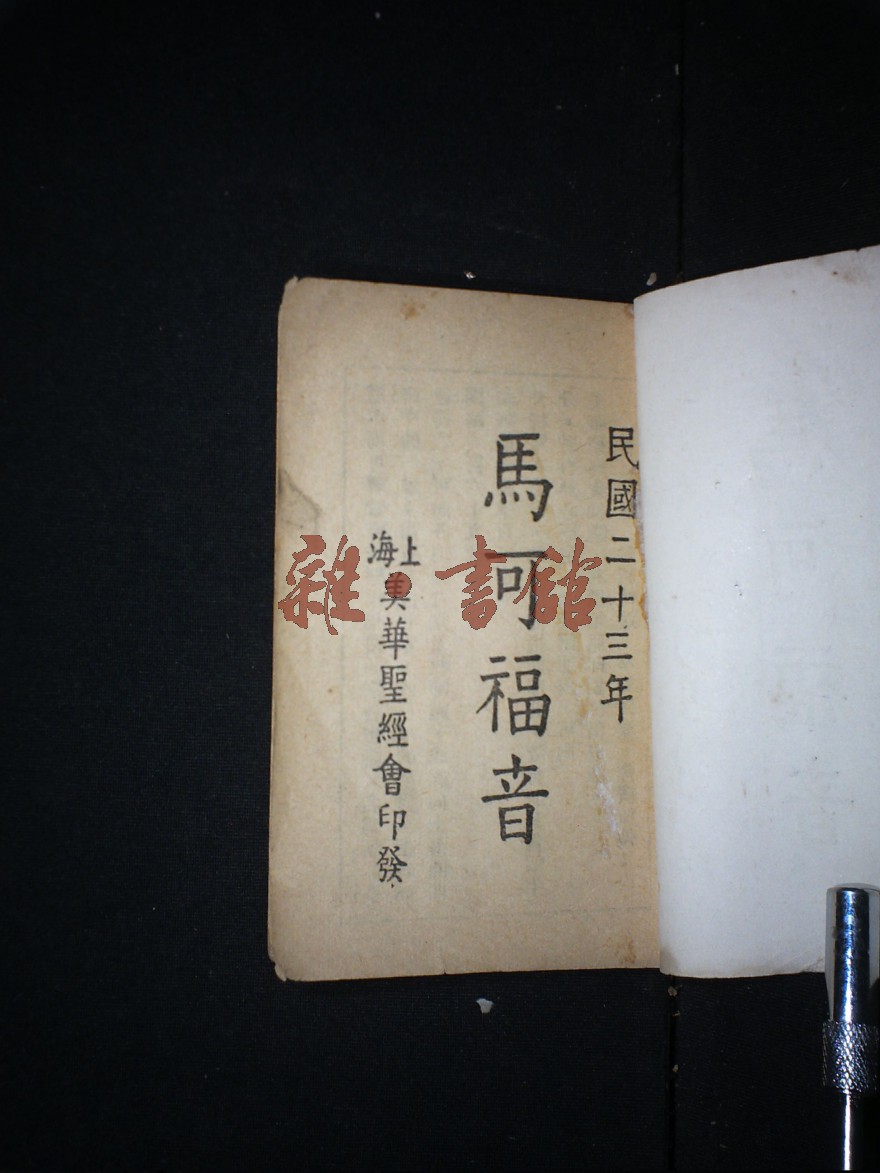 民國二十三年
馬可福音
上海
美華聖經會印發
雜·書館